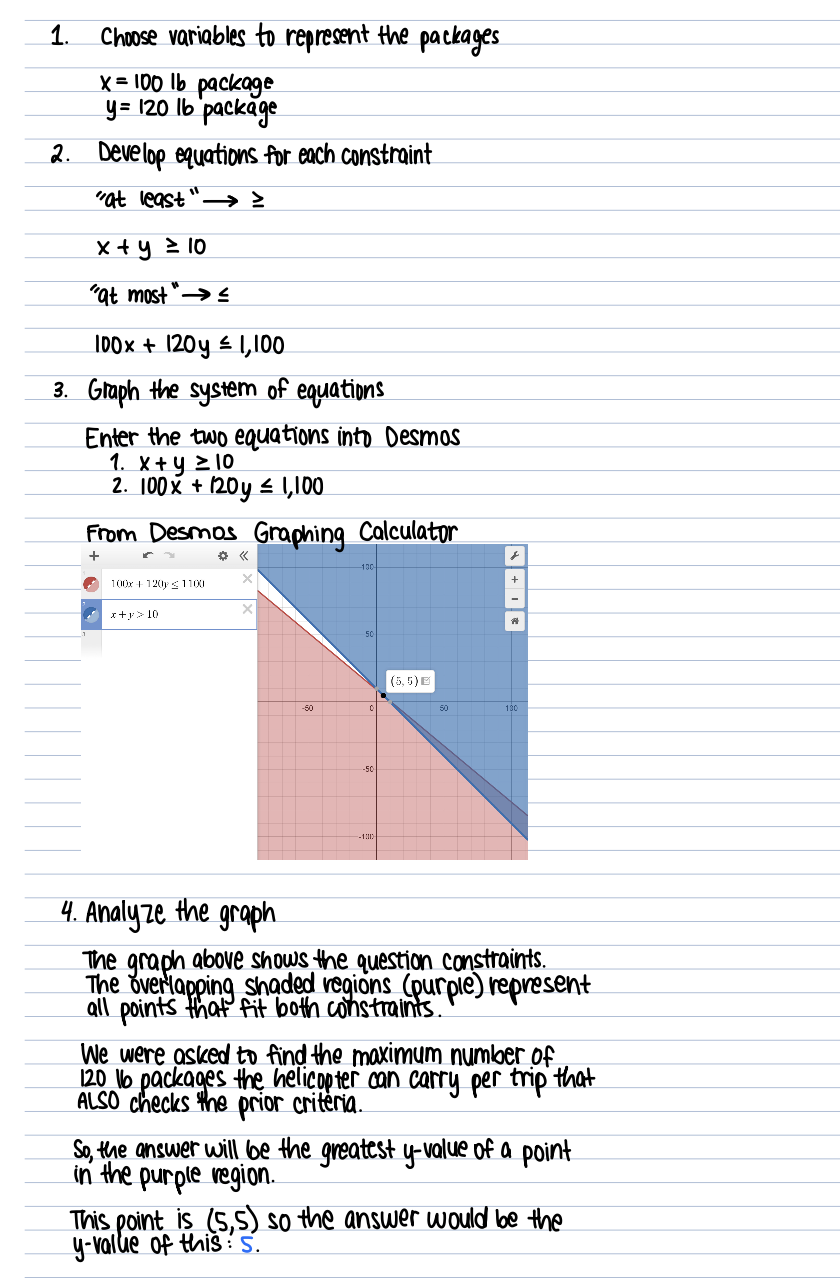 1. Choose variables to represent the packages
x = 100 lb package
y = 120 lb package
2. Develop equations for each constraint
"at least" → ≥
x + y ≥ 10
"at most" → ≤
100x + 120y ≤ 1,100
3. Graph the system of equations
Enter the two equations into Desmos
1. x + y ≥ 10
2. 100x + 120y ≤ 1,100
From Desmos Graphing Calculator
100x + 120y ≤ 1100
x + y > 10
3
100
50
(5, 5)
-50
0
50
100
-50
-100
4. Analyze the graph
The graph above shows the question constraints.
The overlapping shaded regions (purple) represent
all points that fit both constraints.
We were asked to find the maximum number of
120 lb packages the helicopter can carry per trip that
ALSO checks the prior criteria.
So, the answer will be the greatest y-value of a point
in the purple region.
This point is (5,5) so the answer would be the
y-value of this: 5.